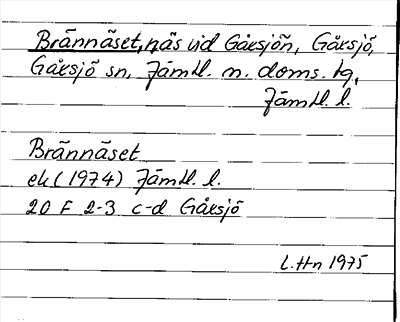 Brännäset, näs vid Gåxsjön, Gåxsjö,
Gåxsjö sn, Jämtl. n. doms. tg,
Jämtl. l.
Brännäset
ek (1974) Jämtl. l.
20 F 2-3 c-d Gåxsjö
L.Hn 1975